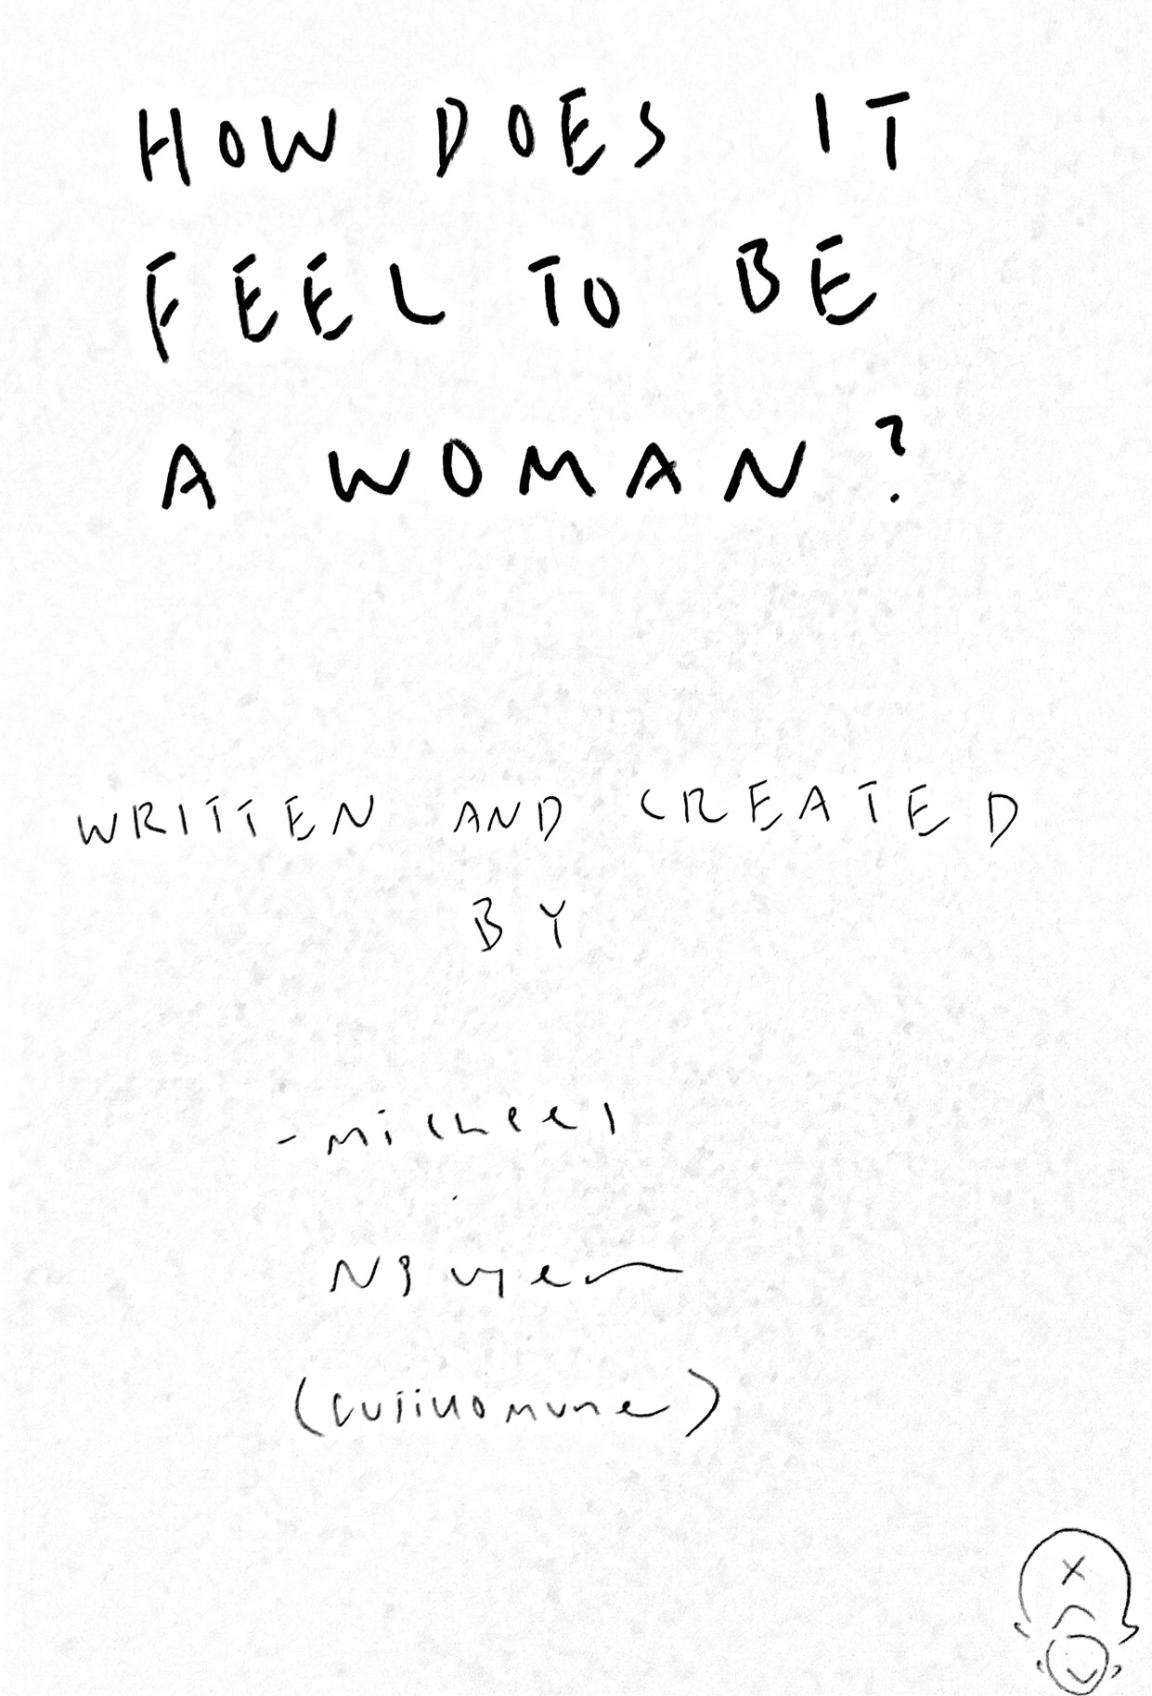 HOW DOES IT
FEEL TO BE
A WOMAN?
WRITTEN AND CREATED
BY
- michael
Nguyen